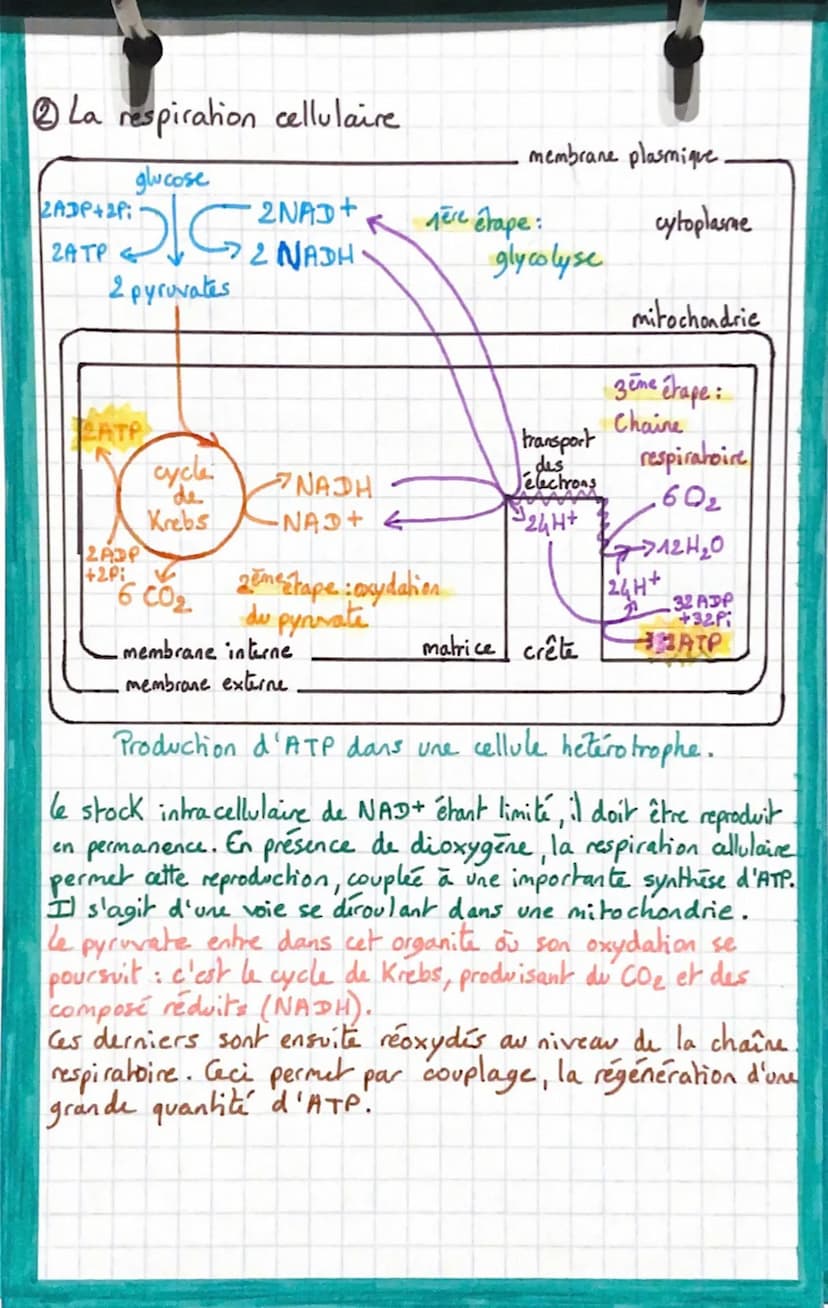 ② La respiration cellulaire
membrane plasmique
glucose
2ADP+2Pi
2NAD+
1ère étape :
cytoplasme
2ATP
2 NADH
glycolyse
2 pyruvates
mitochondrie
3ème étape :
Chaine
respiratoire
2ATP
transport
des
électrons
cycle
de
Krebs
NADH
NAD+
24H+
6O2
12H2O
2ADP
+2Pi
6 CO2
2ème étape : oxydation
du pyruvate
24H+
32ADP
+32Pi
ATP
membrane interne
matrice
crête
membrane externe
Production d'ATP dans une cellule hétérotrophe.
Le stock intracellulaire de NAD+ étant limité, il doit être reproduit
en permanence. En présence de dioxygène, la respiration cellulaire
permet cette reproduction, couplée à une importante synthèse d'ATP.
Il s'agit d'une voie se déroulant dans une mitochondrie.
Le pyruvate entre dans cet organite où son oxydation se
poursuit : c'est le cycle de Krebs, produisant du CO2 et des
composé réduits (NADH).
Ces derniers sont ensuite réoxydés au niveau de la chaîne
respiratoire. Ceci permet par couplage, la régénération d'une
grande quantité d'ATP.